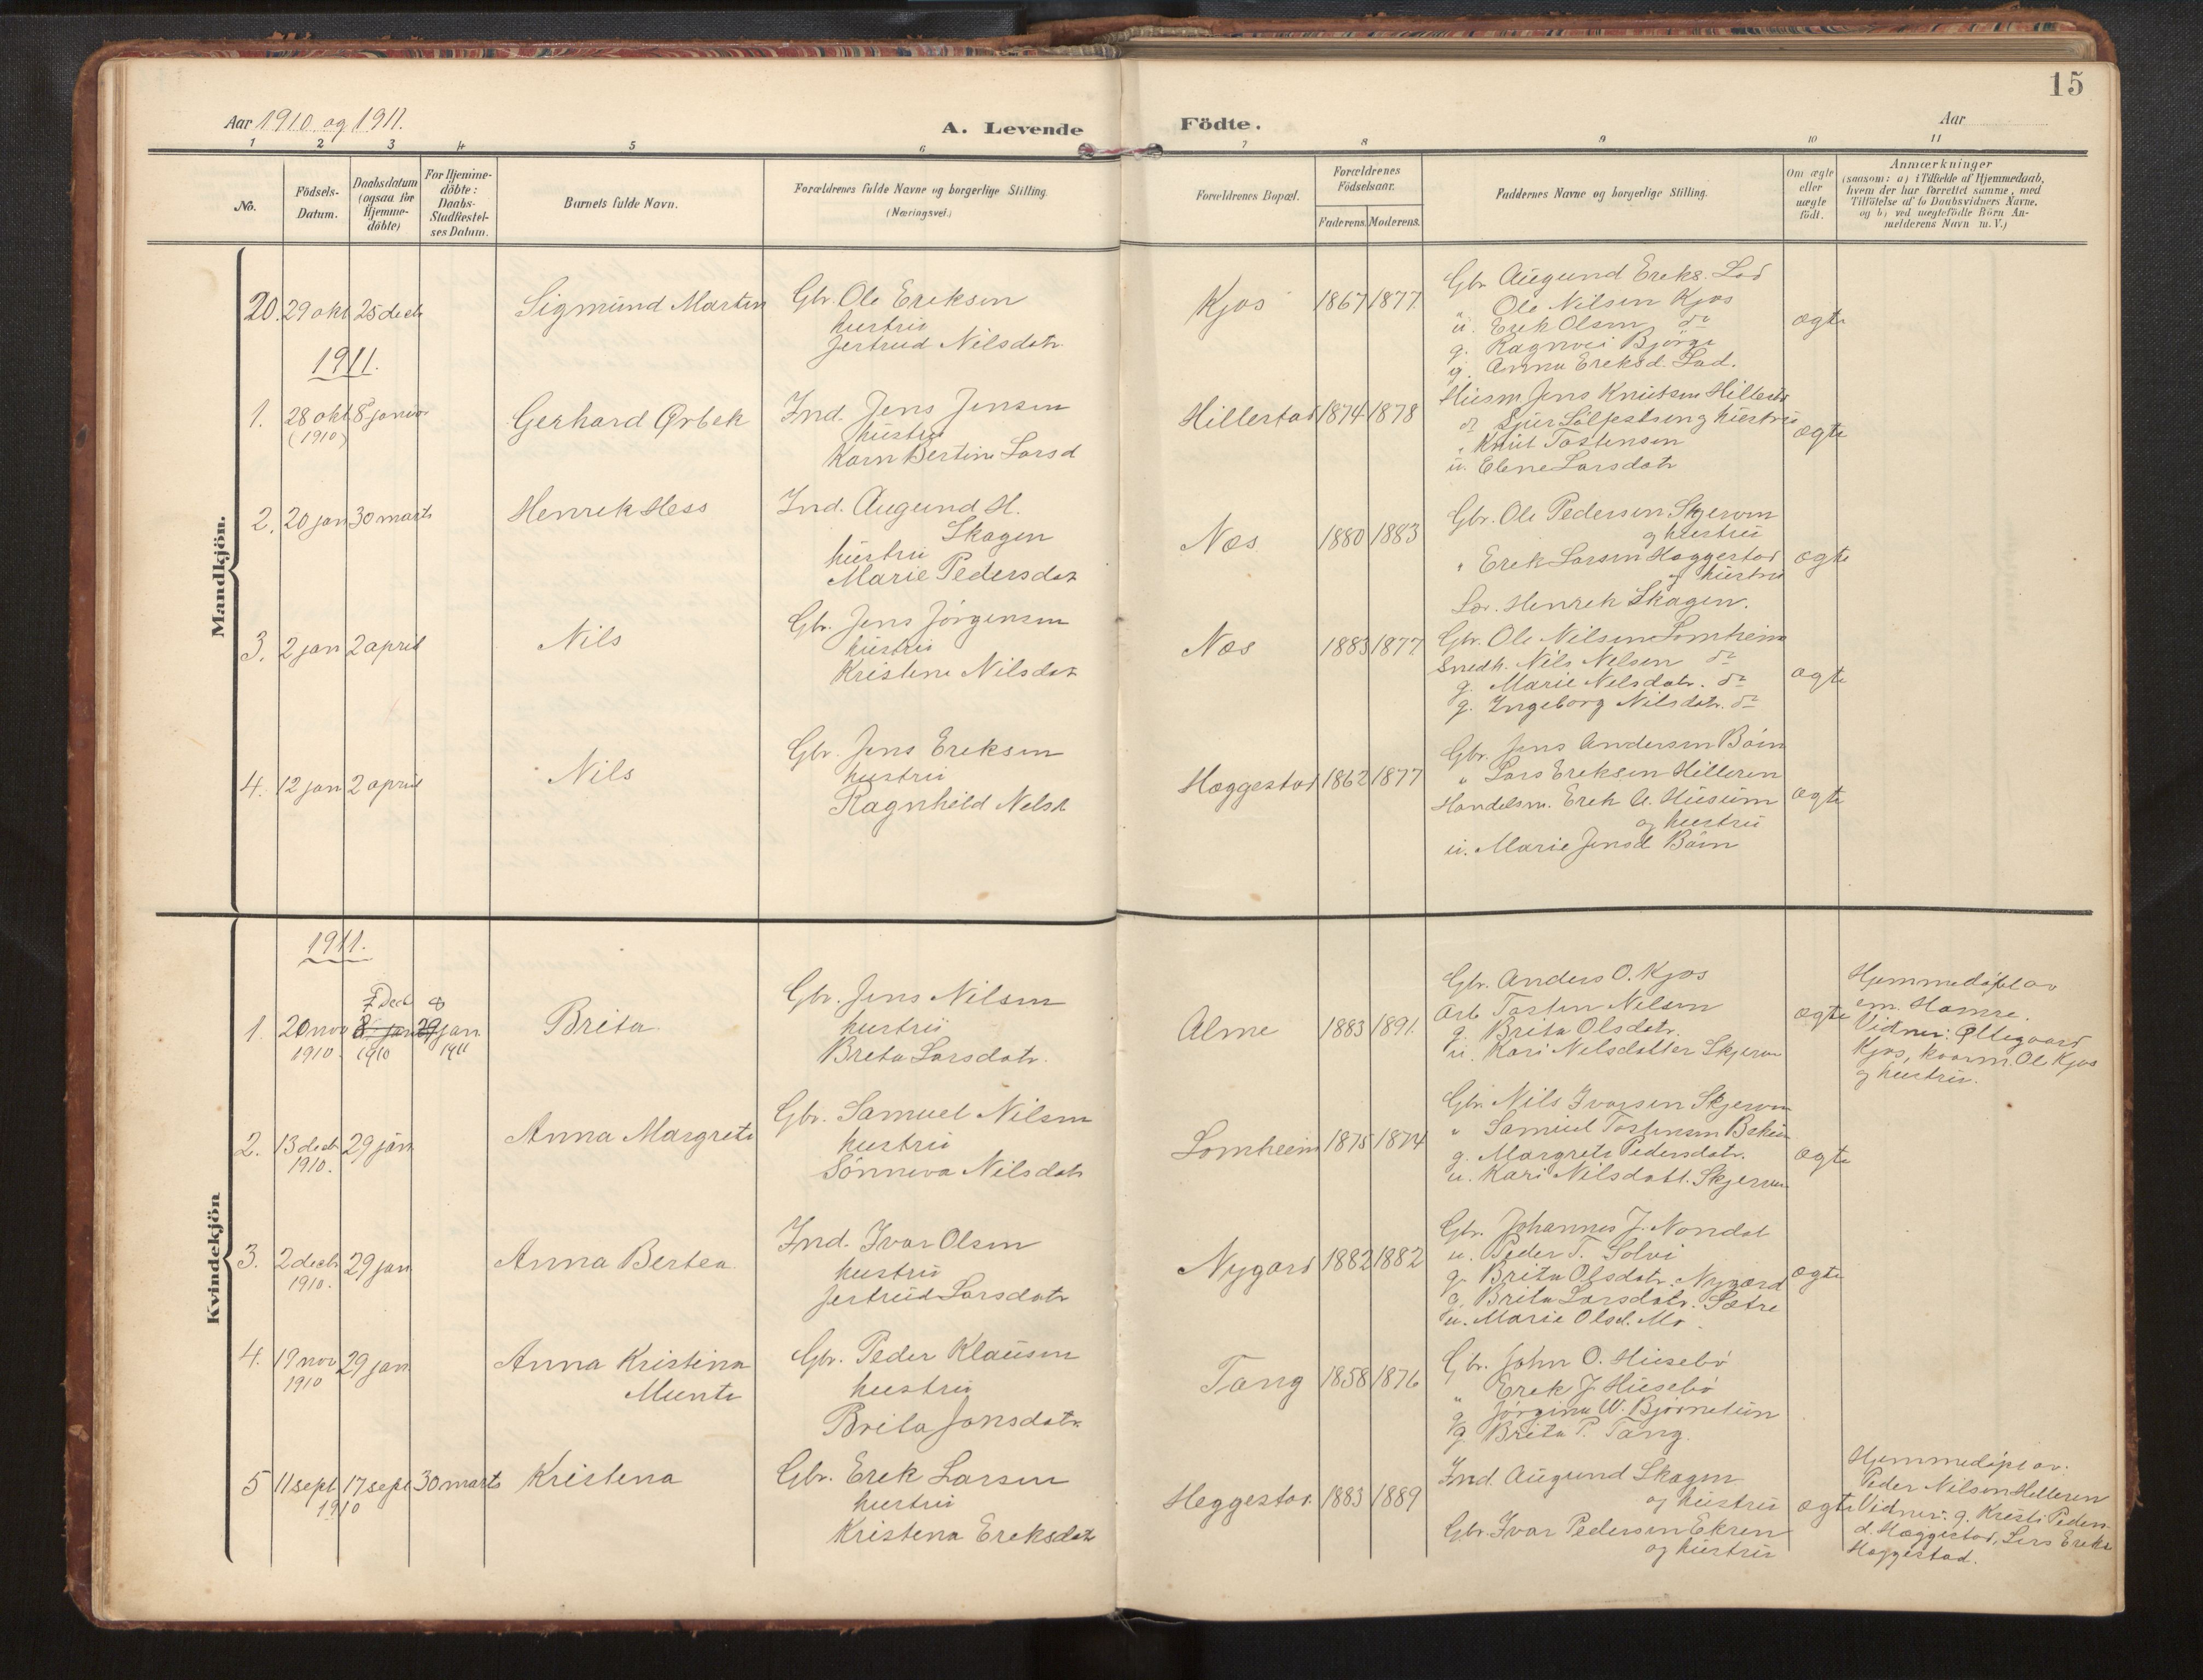 15
Aar 1910 og 1911.
A. Levende Födte.
Aar
1 2 3 4 5 6 7 8 9 10 11
No.
Födsels-
Datum.
Daabsdatum
(ogsaa for
Hjemme-
døbte)
For Hjemme-
döbte:
Daabs-
Stadfestel-
ses Datum.
Barnets fulde Navn.
Forældrenes fulde Navne og borgerlige Stilling
(Næringsvei.)
Forældrenes Bopæl.
Forældrenes
Födselsaar.
Faderens. Moderens.
Faddernes Navne og borgerlige Stilling.
Om ægte
eller
uægte
födt.
Anmærkninger
(saasom: a) i Tilfælde af Hjemmedaab,
hvem der har forrettet samme, med
Tilföielse af to Daabsvidners Navne,
og b) ved uægtefödte Börn An-
melderens Navn m. V.)
Mandkjön.
20. 29 okt 25 decb Sigmund Martin
Gbr. Ole Eriksen
hustru
Jertrud Nilsdatr
Kjos 1867 1877
Gbr. Augund Ereks. Lad
" Ole Nilsen Kjos
u. Erik Olsen do
g. Ragnvei Bjørge
g. Anna Ereksd. Lad.
ægte
1911.
1. 28 okt (1910) 8 januar Gerhard Ørbek
Ind. Jens Jensen
hustru
Karn Bertine Larsd
Hillestad 1874 1878
Husm Jens Knutsen Hillestad
Knut Tostensen
u. Elene Larsdatr
ægte
2. 20 jan 30 marts Henrik Hess
Ind. Augund H.
Skagen
hustru
Marie Pedersdat
Næs 1880 1883
Gbr. Ole Pedersen Skjerven
og hustru
" Erek Larsen Hæggestad
og hustru
Lær. Henrik Skagen.
ægte
3. 2 jan 2 april Nils
Gbr. Jens Jörgensen
hustru
Kristine Nilsdat
Næs 1883 1877
Gbr. Ole Nilsen Lomheim
Snedk. Nils Nelsen do
g. Marie Nelsdatr. do
g. Ingeborg Nilsdatr. do
ægte
4. 12 jan 2 april Nils
Gbr. Jens Ereksen
hustru
Ragnhild Nelsd
Hæggestad 1862 1877
Gbr. Jens Andersen Böin
" Lars Ereksen Hilleren
Handelsm. Erek A. Husum
og hustru
u. Marie Jensd Böin
ægte
Kvindekjön
1911.
1. 20 nov 1910. 7 Decb 8 jan 1910 8 29 jan 1911 Brita
Gbr. Jens Nilsen
hustru
Breta Larsdatr.
Alme 1883 1891.
Gbr. Anders O. Kjos
Arb Tosten Nilsen
g. Brita Olsdatr.
u. Kari Nilsdatter Skjerven
ægte
Hjemmedöbt av
em. Hamre.
Vidner: Øllegaard
Kjos, kaarm. Ole Kjos
og hustru.
2. 13 decb 1910. 29 jan Anna Margrete
Gbr. Samuel Nilsen
hustru
Sönneva Nilsdatr
Lomheim 1875 1874
Gbr. Nils Ivarsen Skjerven
" Samuel Tostensen
g. Margrete Pedersdatr.
u. Kari Nilsdatt. Skjerven
ægte
3. 2 decb 1910. 29 jan Anna Bertea
Ind. Ivar Olsen
hustru
Jertrud Larsdatr
Nygard 1882 1882
Gbr. Johannes J. Nondal
u. Peder T. Solvi
g. Brita Olsdatr. Nygard
g. Brita Larsdatr. Sætre
u. Marie Olsd. Mo
ægte
4. 19 nov 1910 29 jan Anna Kristina
Munte
Gbr. Peder Klausen
hustru
Brita Jonsdatr.
Tang 1858 1876
Gbr. John O. Husebö
" Erek J. Husebö
g. Jörgina W. Björnetun
g. Brita P. Tang.
5 11 sept 17 sept 1910 30 marts Kristena
Gbr. Erek Larsen
hustru
Kristena Ereksdatr
Heggestad. 1883 1889
Ind. Augund Skagen
og hustru
Gbr. Ivar Pedersen Ekren
og hustru
ægte
Hjemmedöpt av:
Peder Nilsen Hilleren
Vidner: g. Kristi Peders
d. Hæggestad, Lars Ereks
Hæggestad.